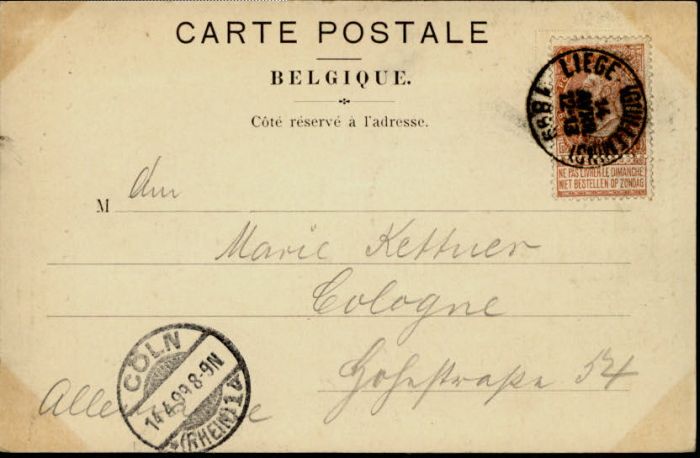 CARTE POSTALE
BELGIQUE.
Côté réservé à l'adresse.
LIEGE (GUILLEMINS)
14
1899
NE PAS LIVRER LE DIMANCHE
NIET BESTELLEN OP ZONDAG
M
Marie Kettner
Cologne
Hohestraße 54
CÖLN
14.4.99 8-9N
*(RHEIN)1a